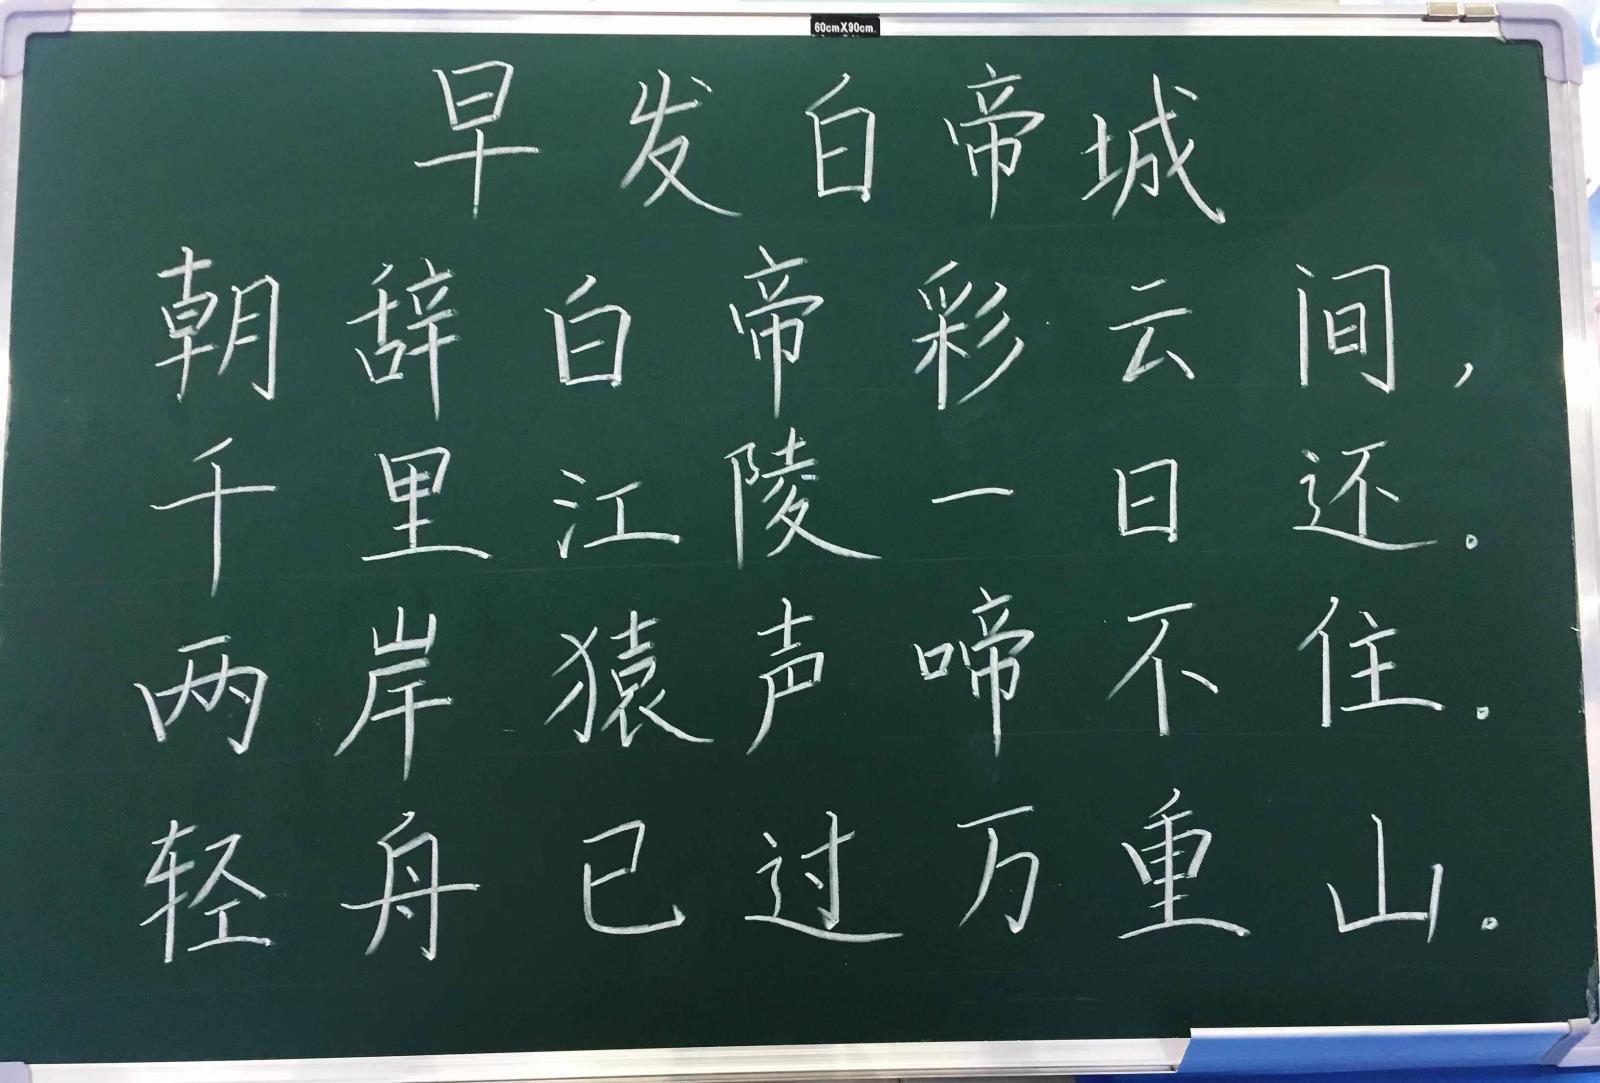 60cmX90cm
早发白帝城
朝辞白帝彩云间，
千里江陵一日还。
两岸猿声啼不住。
轻舟已过万重山。